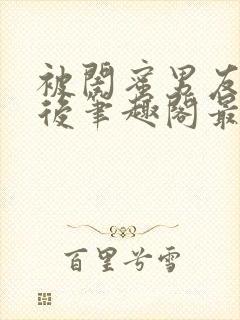 被閨蜜男友
後筆趣閣最
百里兮雪